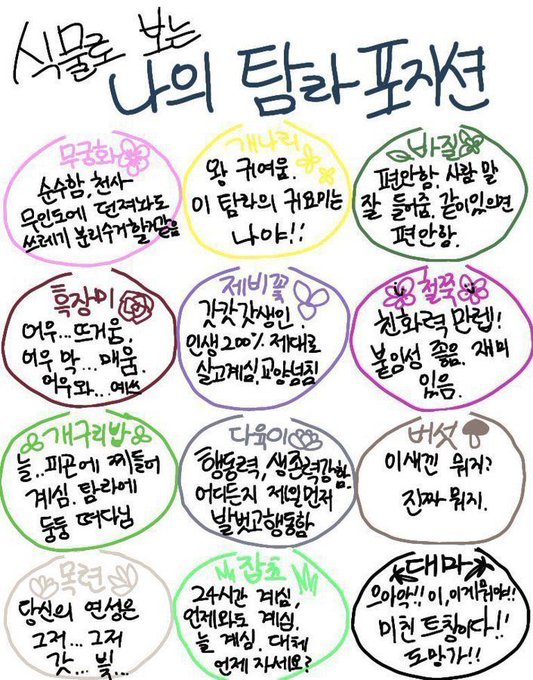 식물로 보는
나의 탐라 포지션
무궁화
순수함, 천사
무인도에 던져놔도
쓰레기 분리수거 할거같음
개나리
왕 귀여움.
이 탐라의 귀요미는
나야!!
바질
편안함. 사람 말
잘 들어줌. 같이있으면
편안함.
흑장미
어우... 뜨거움,
어우 막... 매움.
어우와... 예쓰
제비꽃
갓갓갓생인.
인생 200% 제대로
살고계심. 교양넘침
철쭉
친화력 만렙!
붙임성 좋음. 재미
있음.
개구리밥
늘.. 피곤에 찌들어
계심. 탐라에
둥둥 떠다님
다육이
행동력, 생존력강함
어디든지 제일먼저
발벗고행동함
버섯
이새낀 뭐지?
진짜 뭐지.
목련
당신의 연성은
그저... 그저
갓... 빛...
잡초
24시간 계심,
언제와도 계심.
늘 계심. 대체
언제 자세요?
대마
으아악!! 이, 이게뭐야!!
미친 트칭이다!!
도망가!!